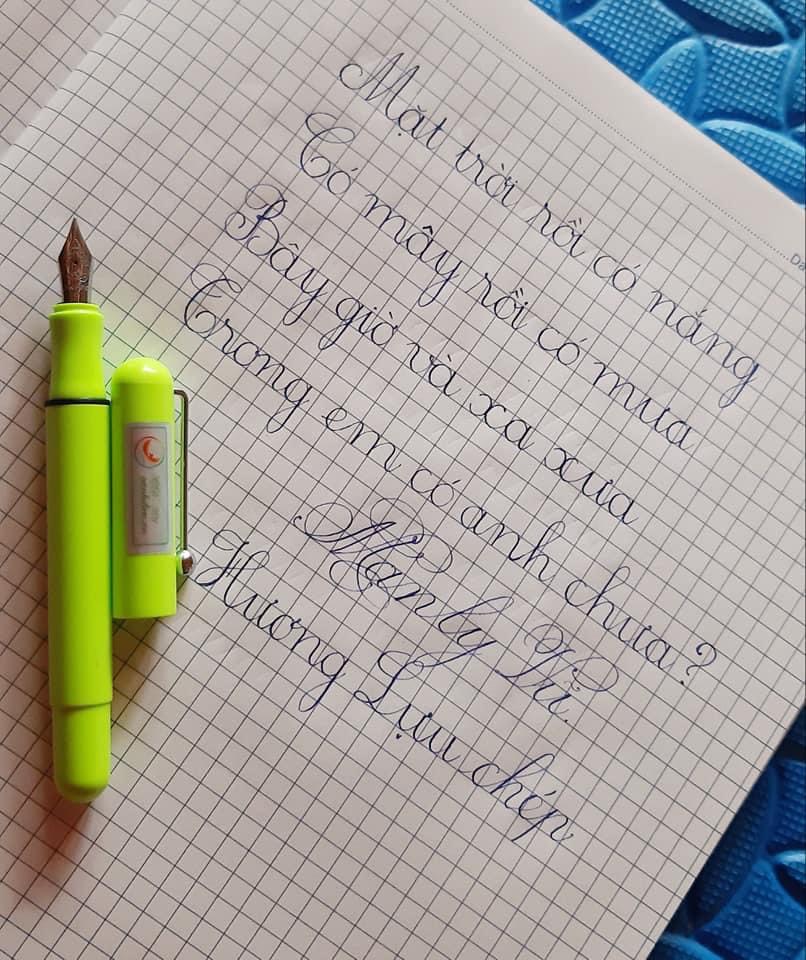 Mặt trời rồi có nắng
Có mây rồi có mưa
Bây giờ và xa xưa
Trong em có anh chưa?
Manly Vũ.
Hương Lựu chép